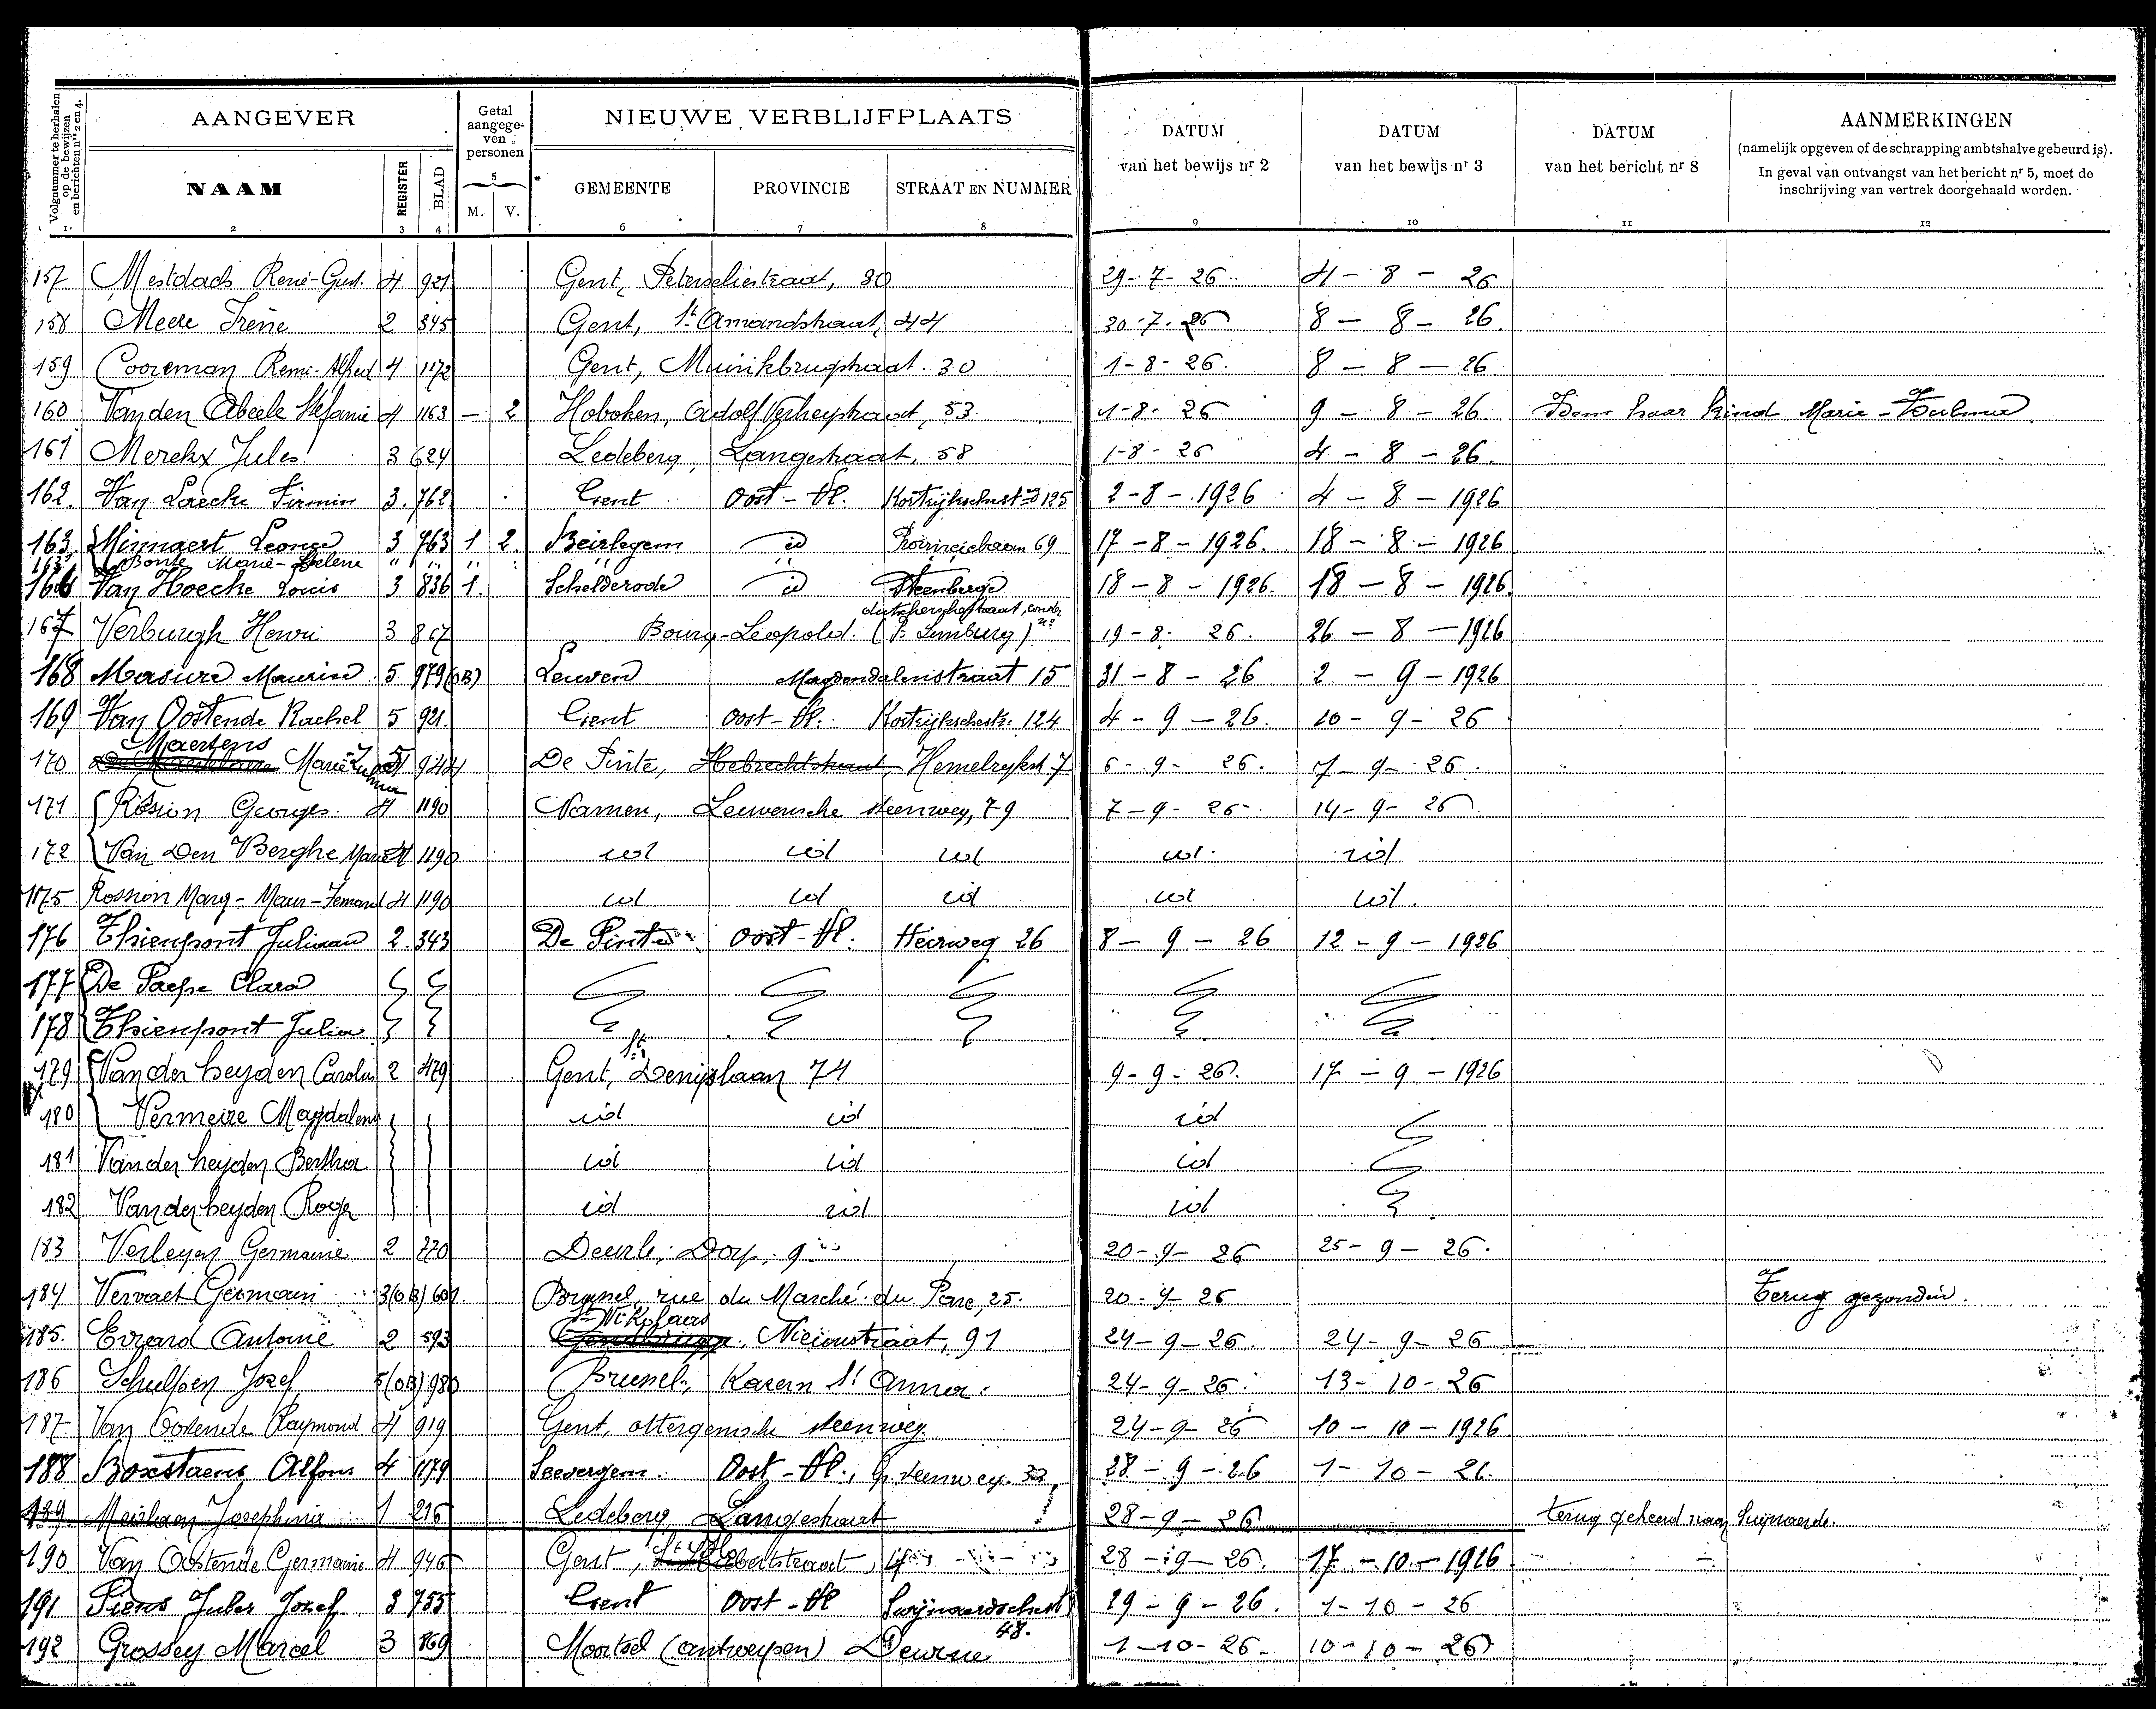 Volgnummer te herhalen op de bewijzen en berichten nrs 2 en 4.
AANGEVER
Getal aangege-ven personen
NIEUWE VERBLIJFPLAATS
DATUM van het bewijs nr 2
DATUM van het bewijs nr 3
DATUM van het bericht nr 8
AANMERKINGEN
(namelijk opgeven of de schrapping ambtshalve gebeurd is).
In geval van ontvangst van het bericht nr 5, moet de
inschrijving van vertrek doorgehaald worden.
NAAM REGISTER BLAD 5 M. V. GEMEENTE PROVINCIE STRAAT EN NUMMER
1 2 3 4 6 7 8 9 10 11 12
157 Mestdach René-Gust. 4 921 Gent, Peterseliestraat, 30 29-7-26 4-8-26
158 Meere Irène 2 345 Gent, St Amandstraat, 44 30-7-26 8-8-26.
159 Cooreman Remi-Alfred 4 1172 Gent, Muinkbrugstraat. 30 1-8-26. 8-8-26
160 Van den Abeele Stefanie 4 1163 - 2 Hoboken, Adolf Verheystraat, 53. 1-8-26 9-8-26. Idem haar kind Marie-
161 Merckx Jules 3 624 Ledeberg, Langestraat, 58 1-8-26 4-8-26.
162. Van Laecke Firmin 3. 762 Gent Oost-Vl. 125 2-8-1926 4-8-1926
163 Minnaert Leonce 3 763 1 2. Beirlegem id Provinciebaan 69 17-8-1926. 18-8-1926
Bonte Marie-Helene " "
166 Van Hoecke Louis 3 836 1. Schelderode id Steenberge 18-8-1926. 18-8-1926.
167 Verburgh Henri 3 867 Bourg-Leopold. (P. Limburg) 19-8-26. 26-8-1926
168 Masure Maurice 5 979(OB) Leuven Magdendalenstraat 15 31-8-26 2-9-1926
169 Van Oostende Rachel 5 921. Gent Oost-Vl. Kortrijkschestr. 124 4-9-26. 10-9-26
Maertens
170 Marie 944 De Pinte, Hebrechtstraat, Hemelrykst 7 6-9-26. 7-9-26.
171 Rosion Georges. 4 1190 Namen, Leuvensche steenweg, 79 7-9-26. 14-9-26.
172 Van Den Berghe Marie 4 1190 id id id id id
1175 Rossion Marg-Maur-Fernand 4 1190 id id id id id.
176 Thienpont Juliaan 2. 343 De Pinte Oost-Vl. Heirweg 26 8-9-26 12-9-1926
177 De Paepe Clara
178 Thienpont Julia
179 Van der heyden Carolus 2 479 Gent, St Denijslaan 74 9-9-26. 17-9-1926
180 Vermeire Magdalena id id id
181 Van der heyden Bertha id id id
182 Van der heyden Roger id id id
183 Verleyen Germaine 2 770 Deurle, Dorp, 9 20-9-26 25-9-26.
184 Vervaet Germain 3(OB) 601. Brussel, rue du Marché du Parc, 25. 20-9-26 Terug gezonden.
St Nikolaas
185. Evrard Antoine 2 593 Nieuwstraat, 91 24-9-26. 24-9-26
186 Schulpen Jozef 5(OB) 980 Brussel, Kazern St Anna. 24-9-26. 13-10-26
187 Van Oostende Raymond 4 919 Gent, ottergemsche steenweg. 24-9-26 10-10-1926
188 Boxstaens Alfons 4 1179 Seevergem. Oost-Vl., G. steenweg. 33 28-9-26 1-10-26.
189 Meirlaen Josephina 1 216 Ledeberg, Langestraat 28-9-26 terug gekeerd naar Swijnaerde.
190 Van Oostende Germaine 4 946 Gent, 28-9-26. 17-10-1926
191 Piens Jules Jozef. 3 755 Gent Oost-Vl Swijnaerdschest 48. 29-9-26. 1-10-26
192 Grossey Marcel 3 869 Moortsel (Antwerpen) Deurne 1-10-26. 10-10-26